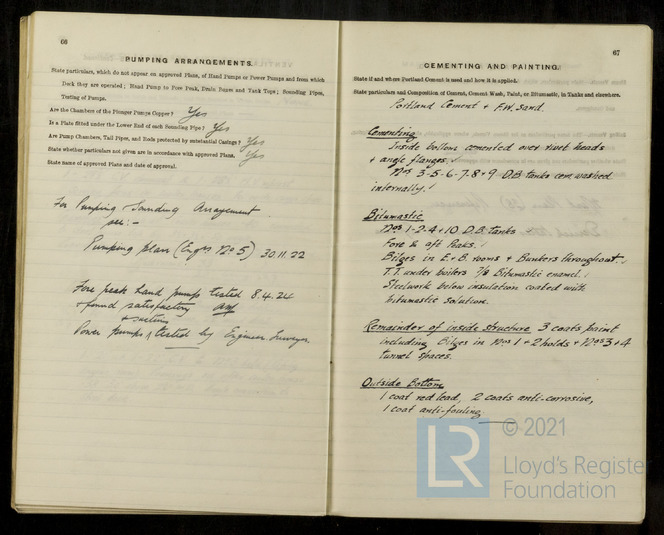 66
PUMPING ARRANGEMENTS.
State particulars, which do not appear on approved Plans, of Hand Pumps or Power Pumps and from which
Deck they are operated; Hand Pump to Fore Peak, Drain Boxes and Tank Tops; Sounding Pipes,
Testing of Pumps.
Are the Chambers of the Plunger Pumps Copper? Yes
Is a Plate fitted under the Lower End of each Sounding Pipe? Yes
Are Pump Chambers, Tail Pipes, and Rods protected by substantial Casings? Yes
State whether particulars not given are in accordance with approved Plans. Yes
State name of approved Plans and date of approval.
For Pumping & Sounding Arrangement
see:-
Pumping plan (Engrs No 5) 30.11.22
Fore peak hand pump tested 8.4.24
& found satisfactory
& suctions
Power pumps, tested by Engineer Surveyor.
67
CEMENTING AND PAINTING.
State if and where Portland Cement is used and how it is applied.
State particulars and Composition of Cement, Cement Wash, Paint, or Bitumastic, in Tanks and elsewhere.
Portland Cement & F.W. Sand.
Cementing
Inside bottom cemented over rivet heads
& angle flanges.
Nos 3-5-6-7-8+9 D.B. tanks cem washed
internally.
Bitumastic
Nos 1-2-4+10 D.B. tanks
Fore & aft Peaks.
Bilges in E+B. rooms & Bunkers throughout.
T.T. under boilers 7/8 Bitumastic enamel.
Steelwork below insulation coated with
bitumastic solution.
Remainder of inside structure 3 coats paint
including Bilges in Nos 1+2 holds & Nos 3+4
tunnel spaces.
Outside Bottom
1 coat red lead, 2 coats anti-corrosive,
1 coat anti-fouling
LR
© 2021
Lloyd's Register
Foundation